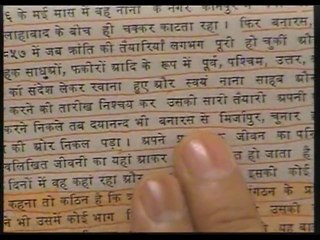 ६ के मई मास में वह नाना के नगर कानपुर में
लाहाबाद के बीच ही चक्कर काटता रहा। फिर बनारस,
५७ में जब क्रांति की तैयारियां लगभग पूरी हो चुकीं और
हक साधुओं, फकीरों आदि के रूप में पूर्व, पश्चिम, उत्तर,
का संदेश लेकर रवाना हुए और स्वयं नाना साहब
करने की तारीख निश्चय कर उसकी सारी तैयारी अपनी
करने निकले तब दयानन्द भी बनारस से मिर्जापुर, चुनार
की ओर निकल पड़ा। अपने जीवन का
लिखित जीवनी का यहां आकर हो जाता है
दिनों में वह कहां रहा और इसकी कोई
कहना तो कठिन है कि के
भी उसमें कोई भाग